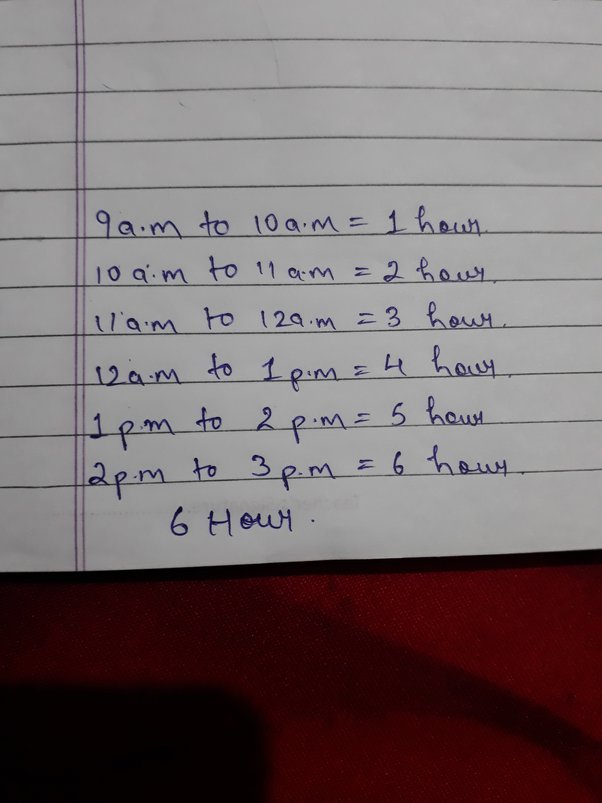 9a.m to 10a.m = 1 hour.
10 a.m to 11 a.m = 2 hour.
11a.m to 12a.m = 3 hour.
12a.m to 1p.m = 4 hour.
1 p.m to 2 p.m = 5 hour
2p.m to 3p.m = 6 hour.
6 Hour.